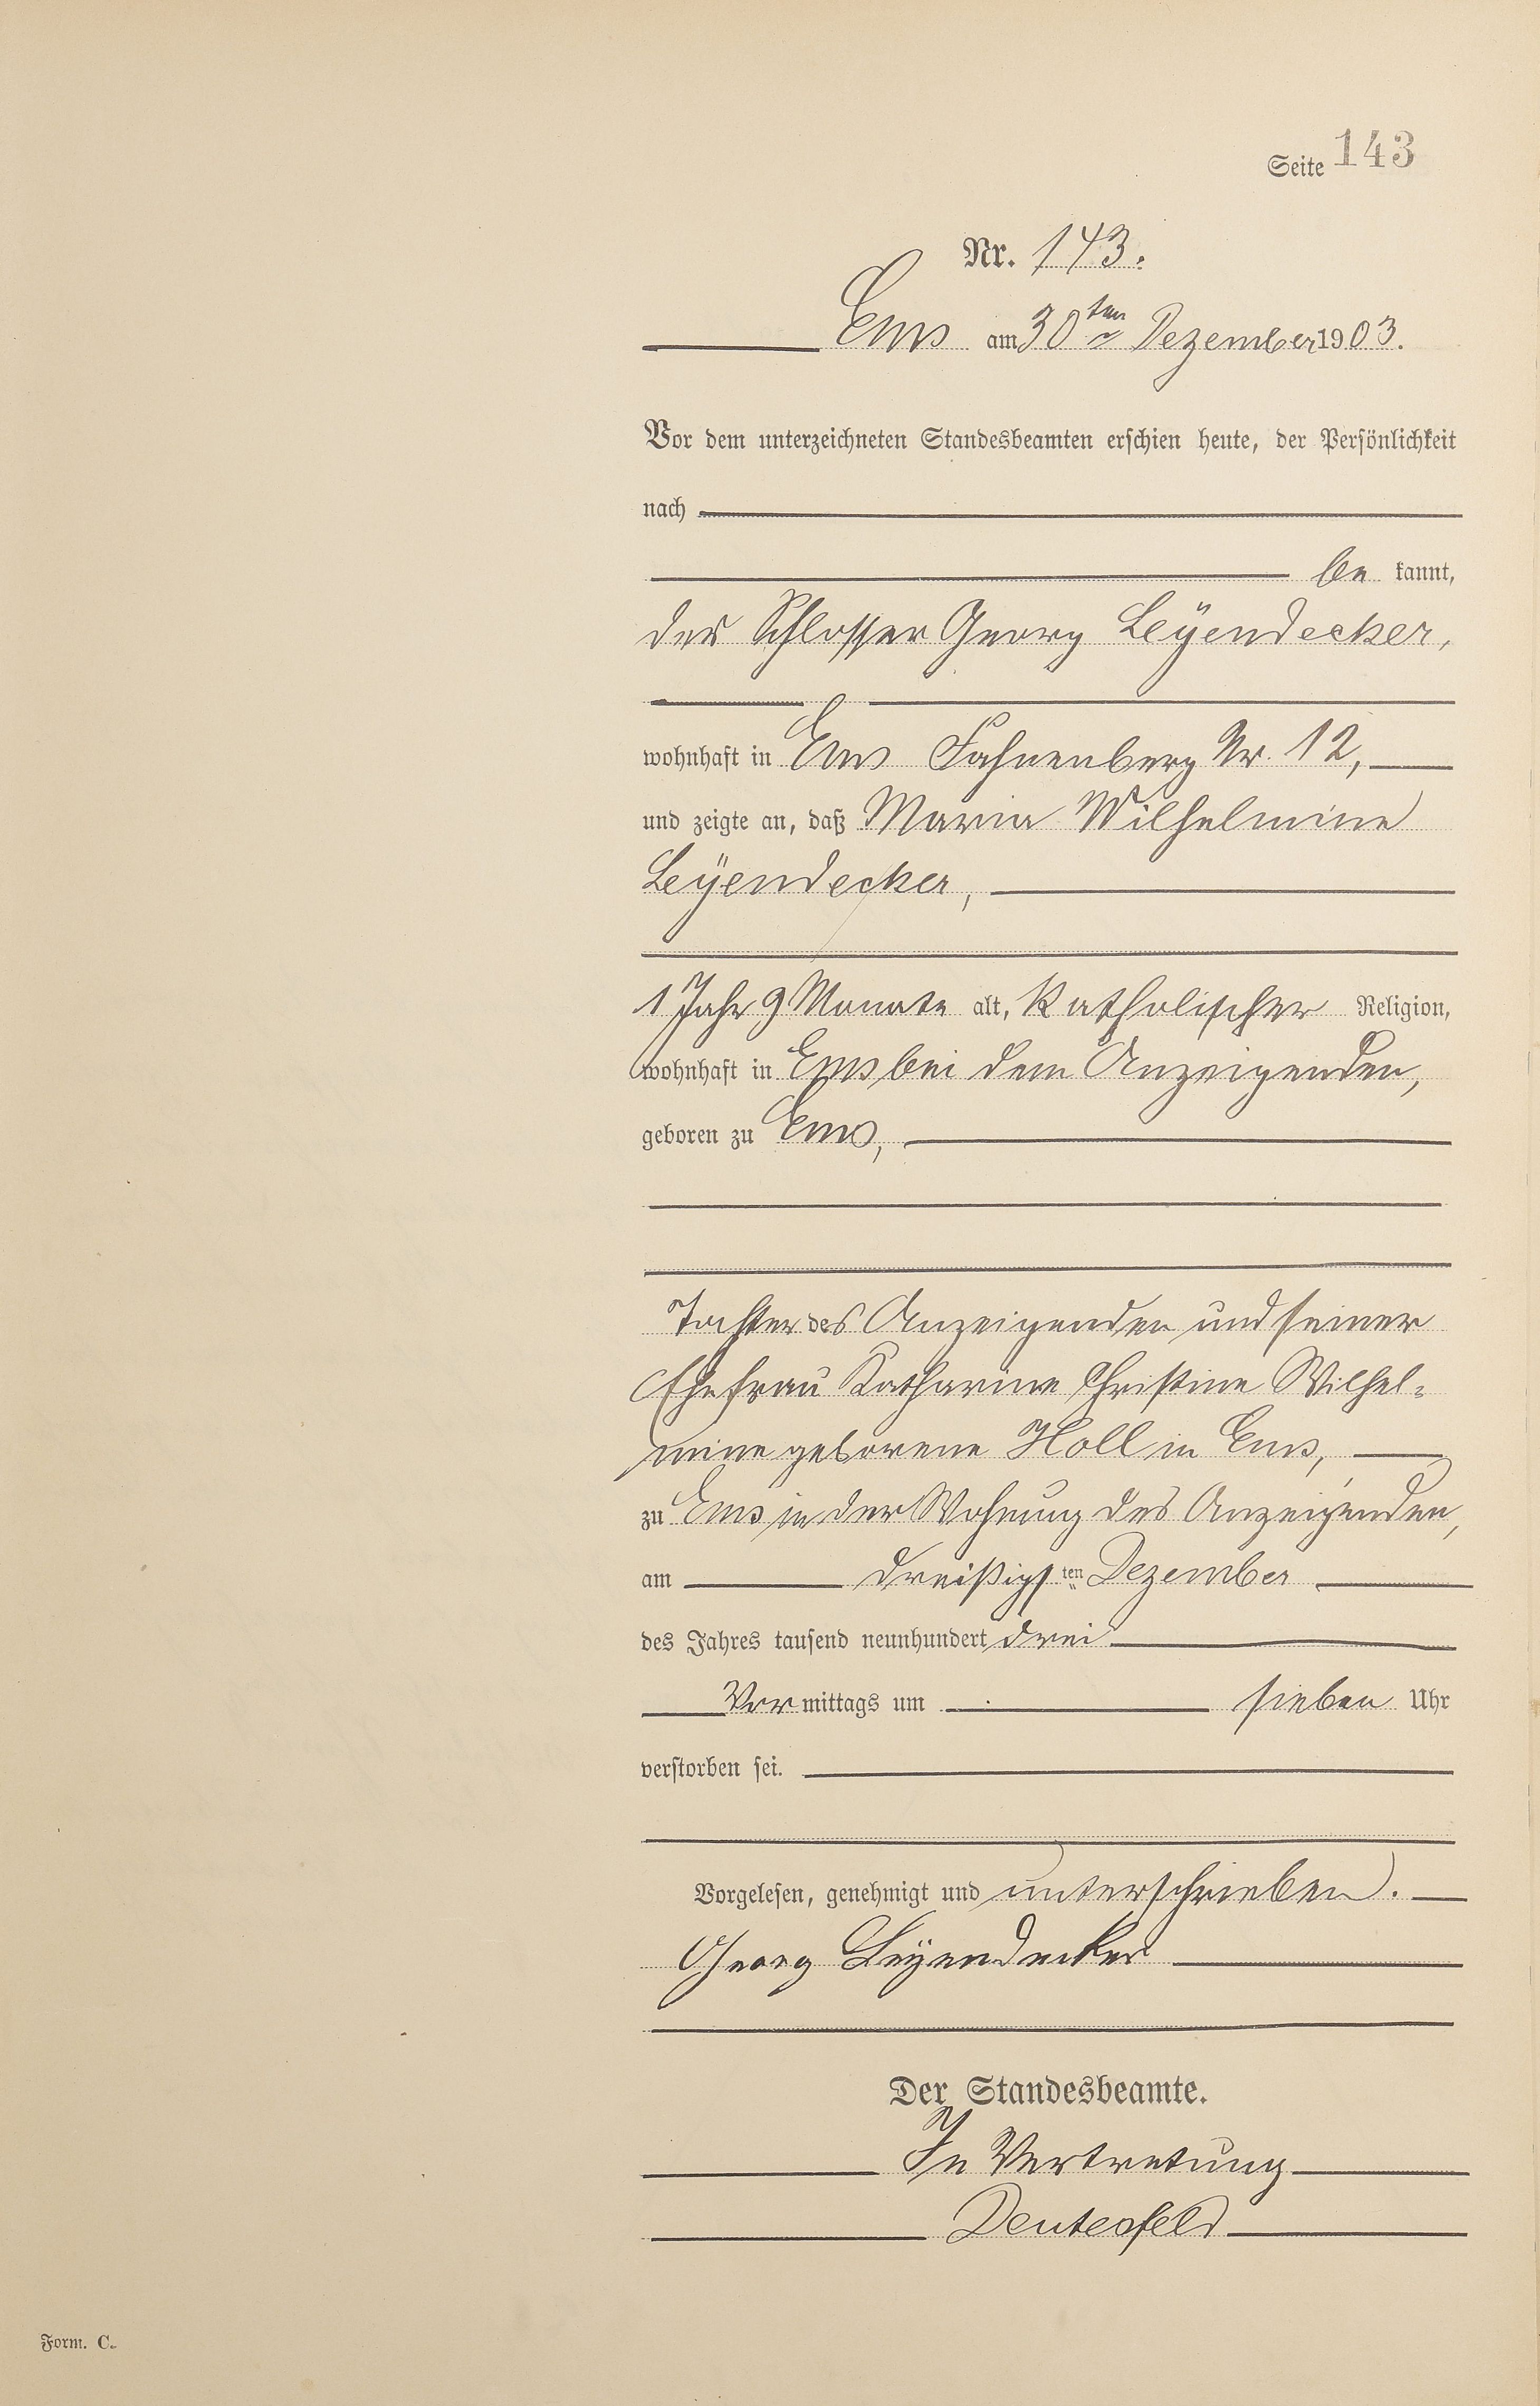 Seite 143
Nr. 143.
Ems am 30ten Dezember 1903.
Vor dem unterzeichneten Standesbeamten erschien heute, der Persönlichkeit
nach
be kannt,
der Schlosser Georg Leÿendecker,
wohnhaft in Ems Fahnenberg Nr. 12,
und zeigte an, daß Maria Wilhelmine
Leÿendecker,
1 Jahr 9 Monate alt, katholischer Religion,
wohnhaft in Ems bei dem Anzeigenden,
geboren zu Ems,
Tochter des Anzeigenden und seiner
Ehefrau Katharine Christine Wilhel-
mine geborene Holl in Ems,
zu Ems in der Wohnung des Anzeigenden,
am dreißigsten Dezember
des Jahres tausend neunhundert drei
Vor mittags um sieben Uhr
verstorben sei.
Vorgelesen, genehmigt und unterschrieben.
Georg Leÿendecker
Der Standesbeamte.
In Vertretung
Form. C.